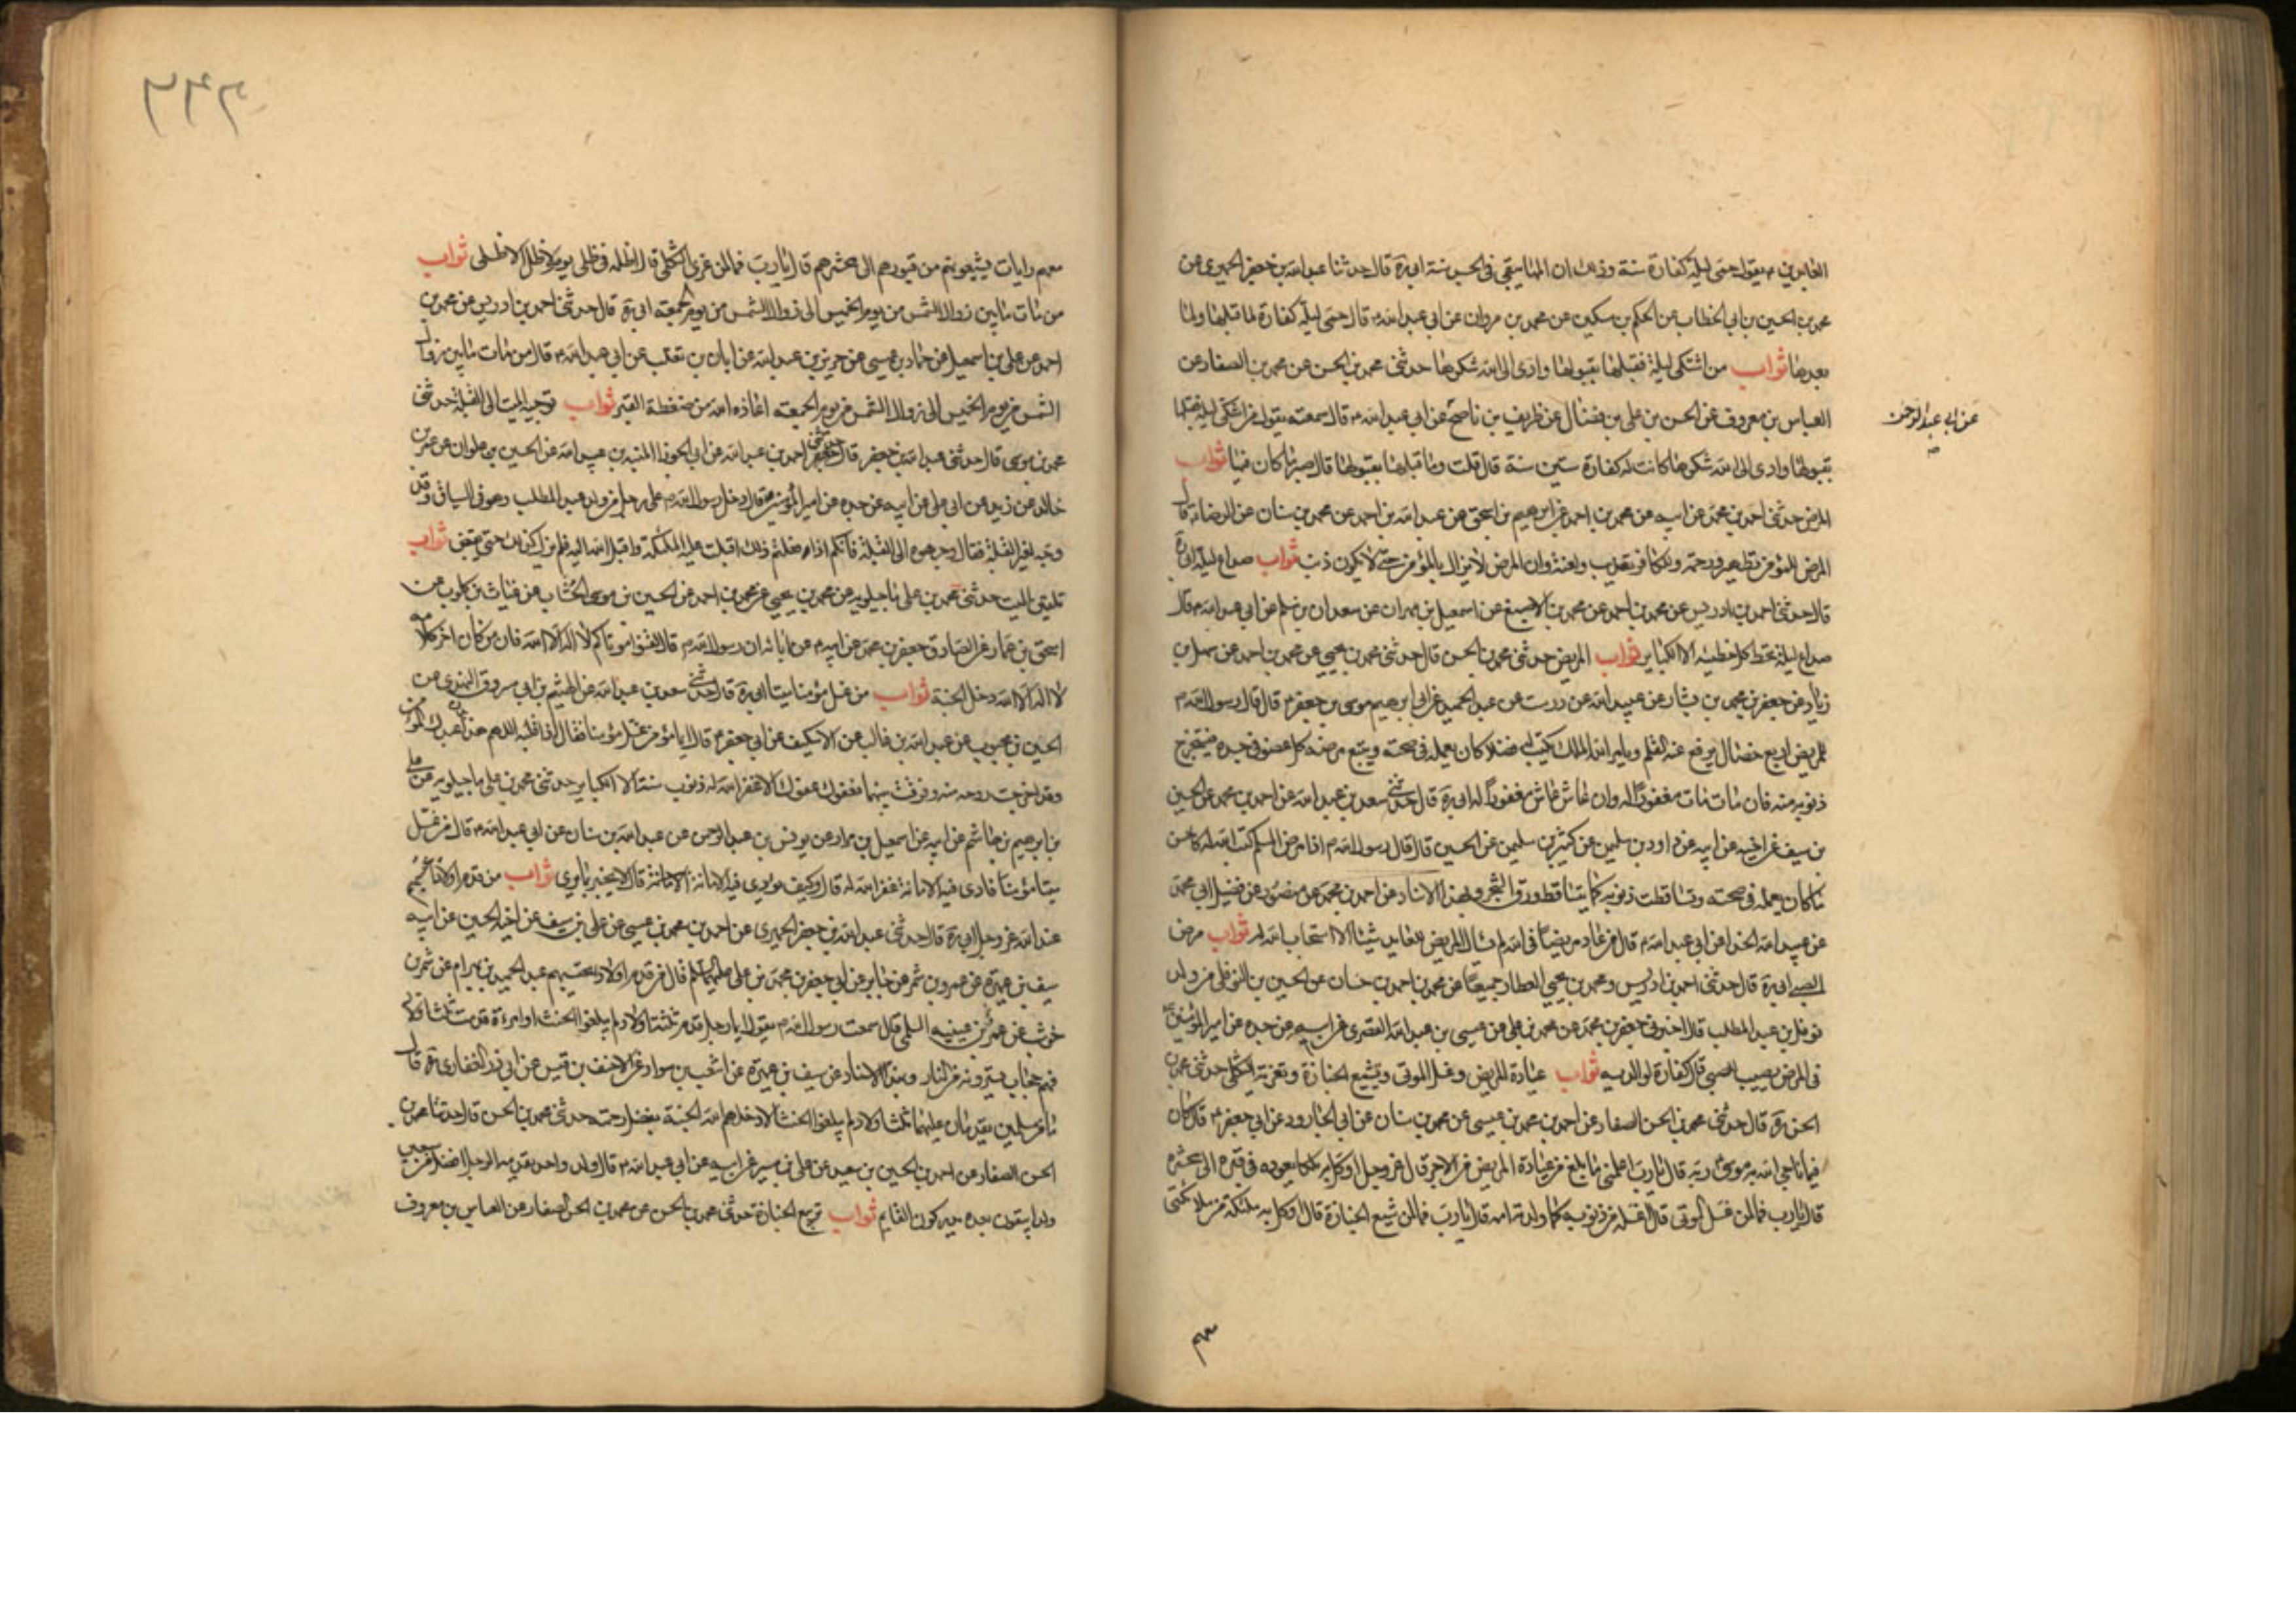 العابدين ع يقول حمى ليلة كفارة سنة وذلك ان المها يبقى في الجسد سنة ابي ره قال حدثنا عبد الله بن جعفر الحميري عن
محمد بن الحسين بن ابي الخطاب عن الحكم بن مسكين عن محمد بن مروان عن ابي عبد الله ع قال حمى ليلة كفارة لما قبلها ولما
بعدها ثواب من اشتكى ليلة فقبلها بقبولها وادى الى الله شكرها حدثنى محمد بن الحسن عن محمد بن الصفار عن
العباس بن معروف عن الحسن بن علي بن فضال عن ظريف بن ناصح عن ابي عبد الله ع قال سمعته يقول من اشتكى ليلة فقبلها
عن ابي عبد الرحمن
بقبولها وادى الى الله شكرها كانت له كفارة ستين سنة قال قلت وما قبلها بقبولها قال صبر على ما كان فيها ثواب
المرض حدثنى احمد بن محمد عن ابيه عن محمد بن احمد عن ابرهيم بن اسحق عن عبد الله بن احمد عن محمد بن سنان عن الرضا ع قال
المرض للمؤمن تطهير ورحمة وللكافر تعذيب ولعنة وان المرض لا يزال بالمؤمن حتى لا يكون ذنب ثواب صداع ليلة ابي ره
قال حدثنى احمد بن ادريس عن محمد بن احمد عن محمد بن الاصبغ عن اسمعيل بن مهران عن سعدان بن مسلم عن ابي عبد الله ع قال
صداع ليلة تحط كل خطيئة الا الكباير ثواب المريض حدثنى محمد بن الحسن قال حدثنى محمد بن يحيى عن محمد بن احمد عن سهل بن
زياد عن جعفر بن محمد بن بشار عن عبيد الله عن درست عن عبد الحميد عن ابي ابرهيم موسى بن جعفر ع قال قال رسول الله ص
للمريض اربع خصال يرفع عنه القلم ويامر الله الملك يكتب له فضلا كان يعمله في صحته ويتبع مرضه كل عضو في جسده فيستخرج
ذنوبه منه فان مات مات مغفورا له وان عاش عاش مغفورا له ابي ره قال حدثنى سعد بن عبد الله عن احمد بن محمد عن الحسين
بن سيف عن اخيه عن ابيه عن داود بن سليمن عن كثير بن سليمن عن الحسين قال قال رسول الله ص اذا مرض المسلم كتب الله له كاحسن
ما كان يعمله في صحته وتساقطت ذنوبه كما يتساقط ورق الشجر وبهذا الاسناد عن احمد بن محمد عن منصور عن فضيل ابي محمد
عن عبيد الله الحذا عن ابي عبد الله ع قال من عاد مريضا في الله لم يسال المريض للعايد شيئا الا استجاب الله له ثواب مرض
الصبي ابي ره قال حدثنى احمد بن ادريس ومحمد بن يحيى العطار جميعا عن محمد بن احمد بن حسان عن الحسين بن النوفلي من ولد
نوفل بن عبد المطلب قال اخبرني جعفر بن محمد عن محمد بن علي عن عيسى بن عبد الله العمرى عن ابيه عن جده عن امير المؤمنين ع
في المرض يصيب الصبي قال كفارة لوالديه ثواب عيادة المريض وغسل الموتى وتشييع الجنازة وتعزية الثكلى حدثنى محمد بن
الحسن ره قال حدثنى محمد بن الحسن الصفار عن احمد بن محمد بن عيسى عن محمد بن سنان عن ابي الجارود عن ابي جعفر ع قال كان
فيما ناجى الله به موسى ربه قال يا رب اعلمنى ما بلغ من عيادة المريض من الاجر قال عز وجل اوكل به ملكا يعوده في قبره الى محشره
قال يا رب فما لمن غسل الموتى قال اغسله من ذنوبه كما ولدته امه قال يا رب فما لمن شيع الجنازة قال اوكل به ملئكة من ملائكتى
٣٣
٢٦٦
معهم رايات يشيعونهم من قبورهم الى محشرهم قال يا رب فما لمن عزى الثكلى قال اظله في ظلى يوم لا ظل الا ظلى ثواب
من مات ما بين زوال الشمس من يوم الخميس الى زوال الشمس من يوم الجمعة ابي ره قال حدثنى احمد بن ادريس عن محمد بن
احمد عن علي بن اسمعيل عن حماد بن عيسى عن حريز بن عبد الله عن ابان بن تغلب عن ابي عبد الله ع قال من مات ما بين زوال
الشمس من يوم الخميس الى زوال الشمس من يوم الجمعة اعاذه الله من ضغطة القبر ثواب توجيه الميت الى القبلة حدثنى
محمد بن موسى قال حدثنى عبد الله بن جعفر قال حدثنى احمد بن عبد الله عن ابي الجوزا المنبه بن عبد الله عن الحسين بن علوان عن عمر بن
خالد عن زيد عن ابي علي عن ابيه عن جده عن امير المؤمنين ع قال دخل رسول الله ص على رجل من ولد عبد المطلب وهو في السياق وقد
وجه لغير القبلة فقال وجهوه الى القبلة فانكم اذا فعلتم ذلك اقبلت عليه الملئكة واقبل الله اليه فلم يزل كذلك حتى يقبض ثواب
تلقين الميت حدثنى محمد بن علي ماجيلويه عن محمد بن يحيى عن محمد بن احمد عن الحسين بن موسى الخشاب عن غياث بن كلوب عن
اسحق بن عمار عن الصادق جعفر بن محمد عن ابيه ع عن ابائه ان رسول الله ص قال لقنوا موتاكم لا اله الا الله فان من كان اخر كلامه
لا اله الا الله دخل الجنة ثواب من غسل مؤمنا ميتا ابي ره قال حدثنى سعد بن عبد الله عن الهيثم بن ابي مسروق النهدى عن
الحسين بن محبوب عن عبد الله بن غالب عن الاسكيف عن ابي جعفر ع قال ايما مؤمن غسل مؤمنا فقال اذا قلبه اللهم هذا بدن عبدك المؤمن
وقد اخرجت روحه منه وفرقت بينهما فعفوك عفوك الا غفر الله له ذنوب سنة الا الكباير حدثنى محمد بن علي ماجيلويه عن علي
بن ابرهيم بن هاشم عن ابيه عن اسمعيل بن مرار عن يونس بن عبد الرحمن عن عبد الله بن سنان عن ابي عبد الله ع قال من غسل
ميتا مؤمنا فادى فيه الامانة غفر الله له قال وكيف يؤدى فيه الامانة قال لا يخبر بما يرى ثواب من قدم اولادا يحتسبهم
عند الله عز وجل ابي ره قال حدثنى عبد الله بن جعفر الحميرى عن احمد بن محمد بن عيسى عن علي بن سيف عن اخيه الحسين عن ابيه
سيف بن عميرة عن عمرو بن شمر عن جابر عن ابي جعفر محمد بن علي عليهما السلم قال من قدم اولادا يحتسبهم عبد الحميد بن بهرام عن شهر بن
حوشب عن عمر بن عبسة السلمي قال سمعت رسول الله ص يقول ايما رجل قدم ثلثة اولاد لم يبلغوا الحنث او امرءة قدمت ثلثة اولاد
فهم حجاب يسترونه من النار وبهذا الاسناد عن سيف بن عميرة عن اشعث بن سوار عن الاحنف بن قيس عن ابي ذر الغفارى ره قال
ما من مسلمين يقدمان عليهما ثلثة اولاد لم يبلغوا الحنث الا ادخلهم الله الجنة بفضل رحمته حدثنى محمد بن الحسن قال حدثنا محمد بن
الحسن الصفار عن احمد بن الحسين بن سعيد عن علي بن ميسر عن ابيه عن ابي عبد الله ع قال ولد واحد يقدمه الرجل افضل من سبعين
ولدا يبقون بعده يدركون القايم ثواب تربيع الجنازة حدثنى محمد بن الحسن عن محمد بن الحسن الصفار عن العباس بن معروف